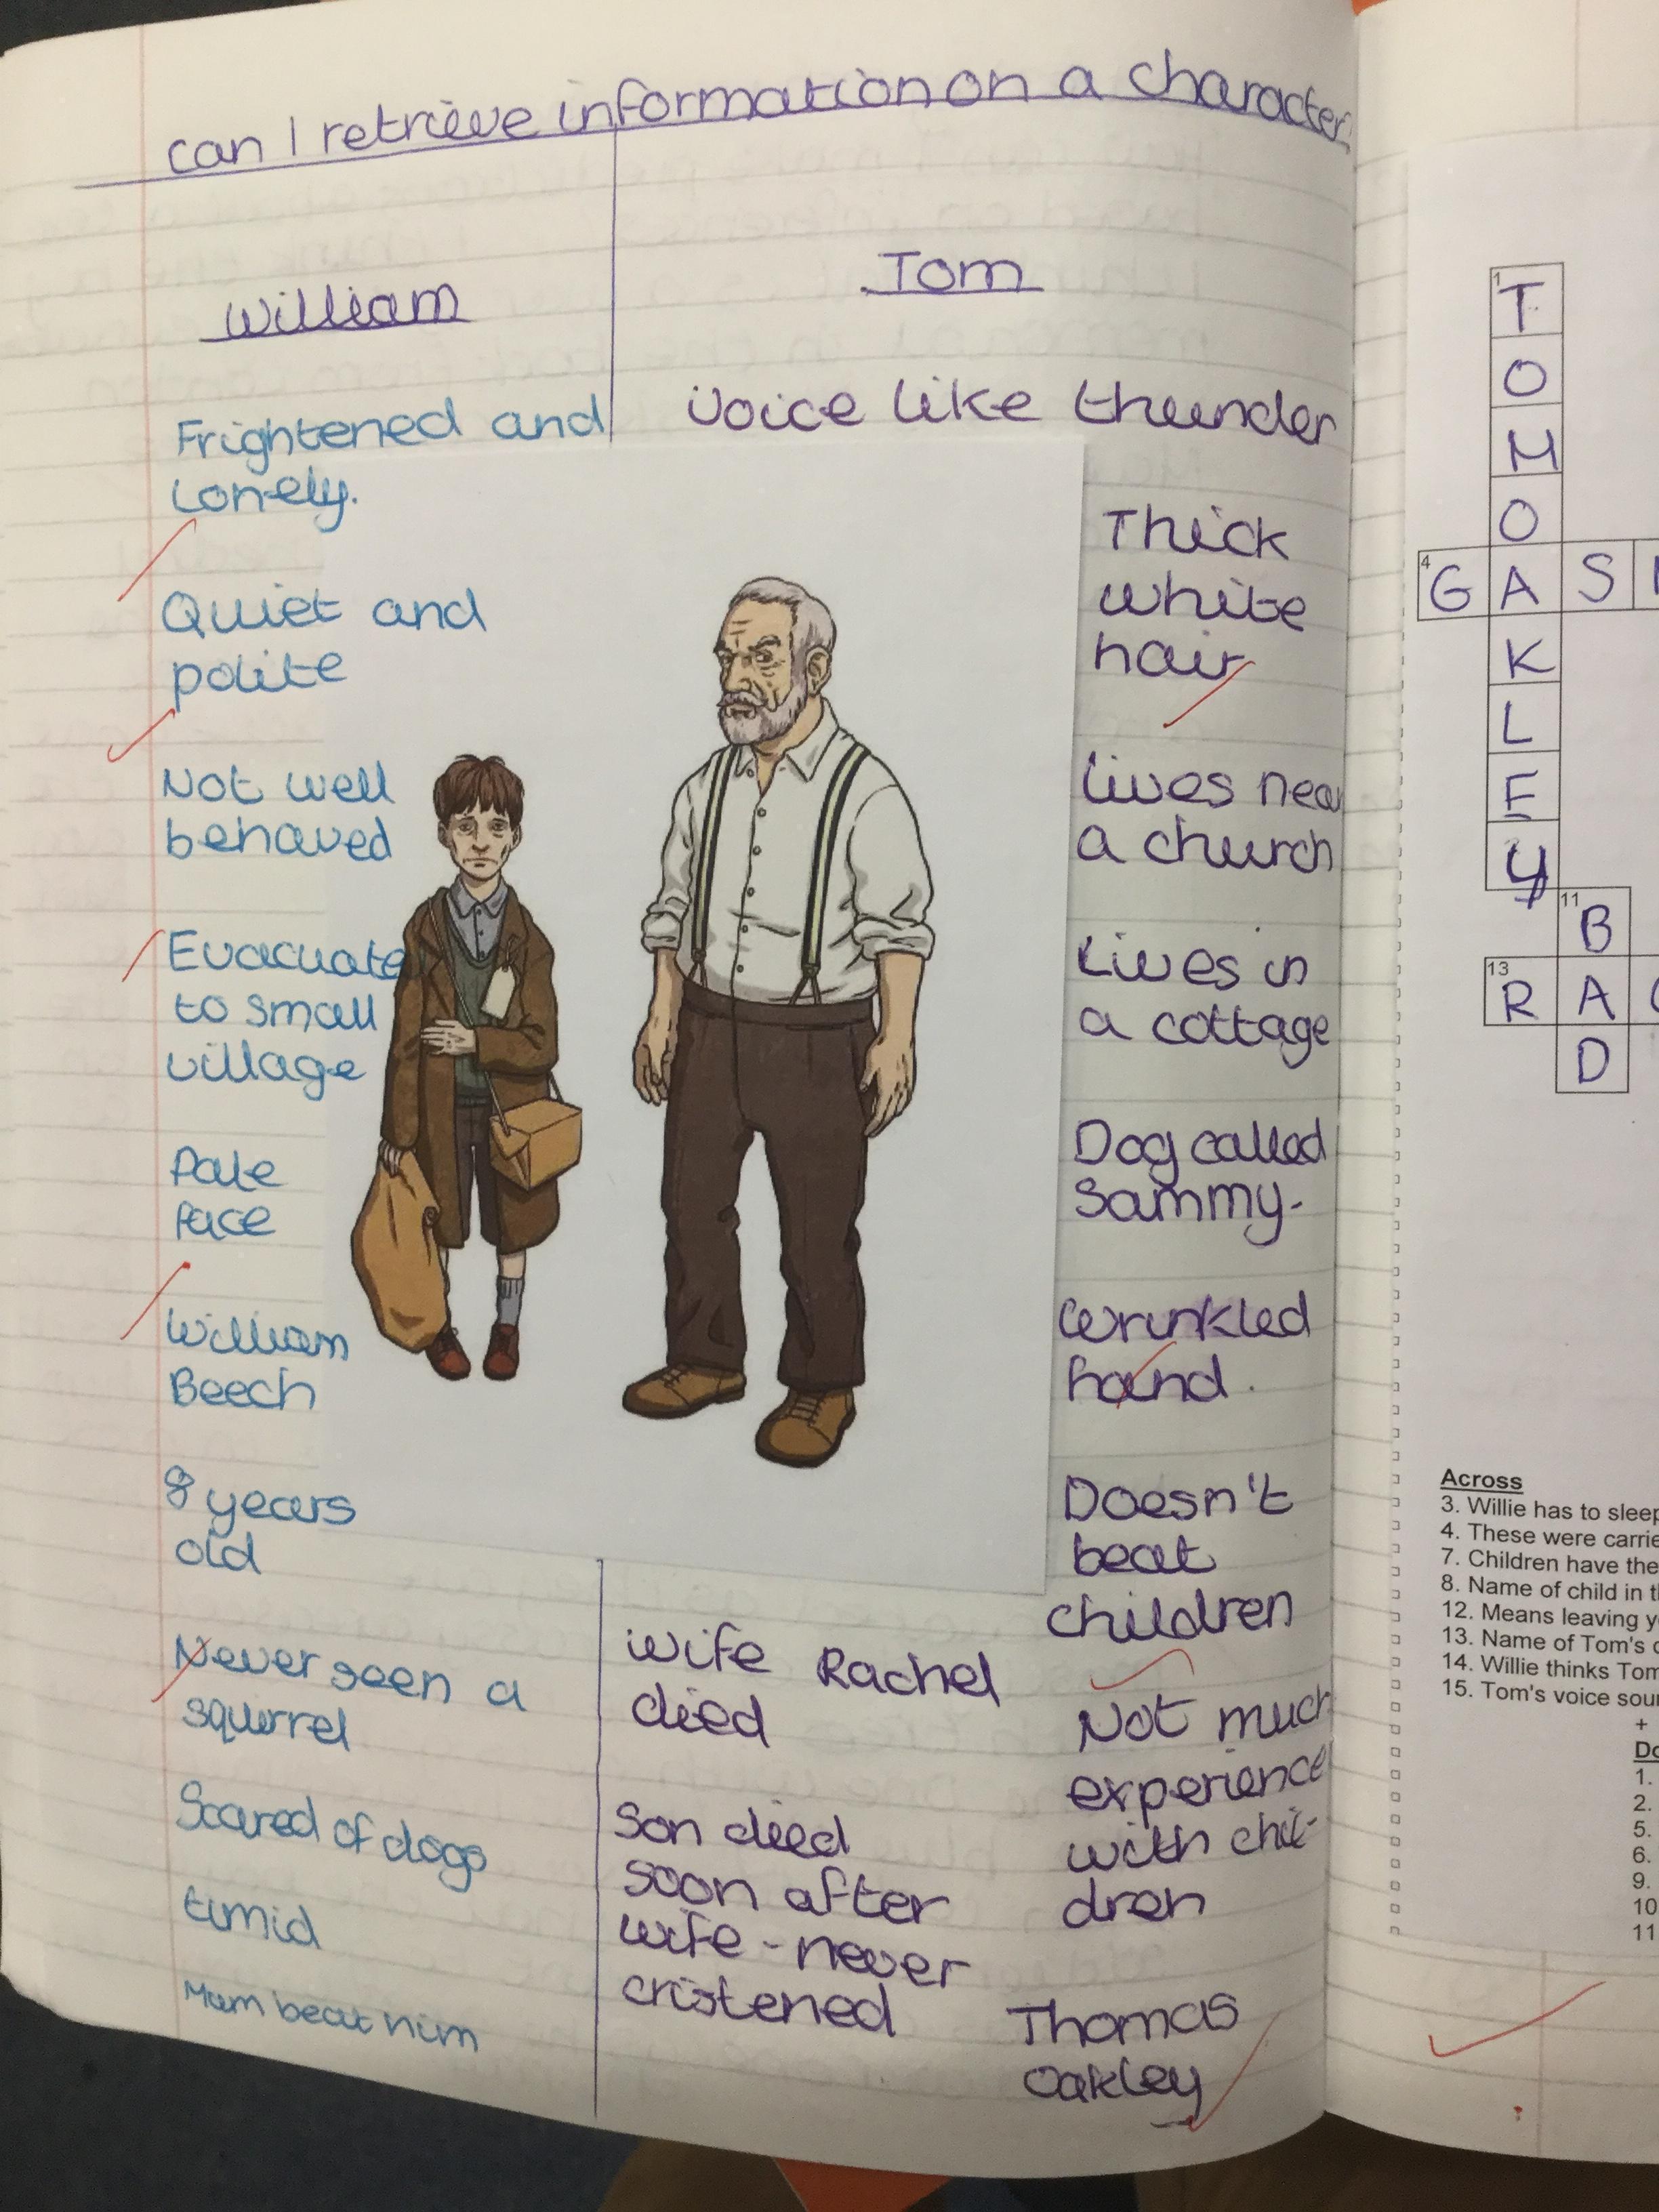 can I retrieve information on a character
William
Frightened and
lonely.
Quiet and
polite
Not well
behaved
Evacuate
to small
village
Pale
face
William
Beech
8 years
old
Never seen a
squirrel
Scared of dogs
timid
Mum beat him
Tom
Voice like thunder
Thick
white
hair
Lives near
a church
Lives in
a cottage
Dog called
Sammy.
Wrinkled
hand.
Doesn't
beat
children
Wife Rachel
died
Son died
soon after
wife - never
cristened
Not much
experience
with chil-
dren
Thomas
Oakley
1
T
O
M
O
4
G A S
K
L
E
Y
11
B
13
R A
D
Across
3. Willie has to sleep
4. These were carrie
7. Children have the
8. Name of child in t
12. Means leaving y
13. Name of Tom's
14. Willie thinks Tom
15. Tom's voice sou
+
Do
1.
2.
5.
6.
9.
10
11